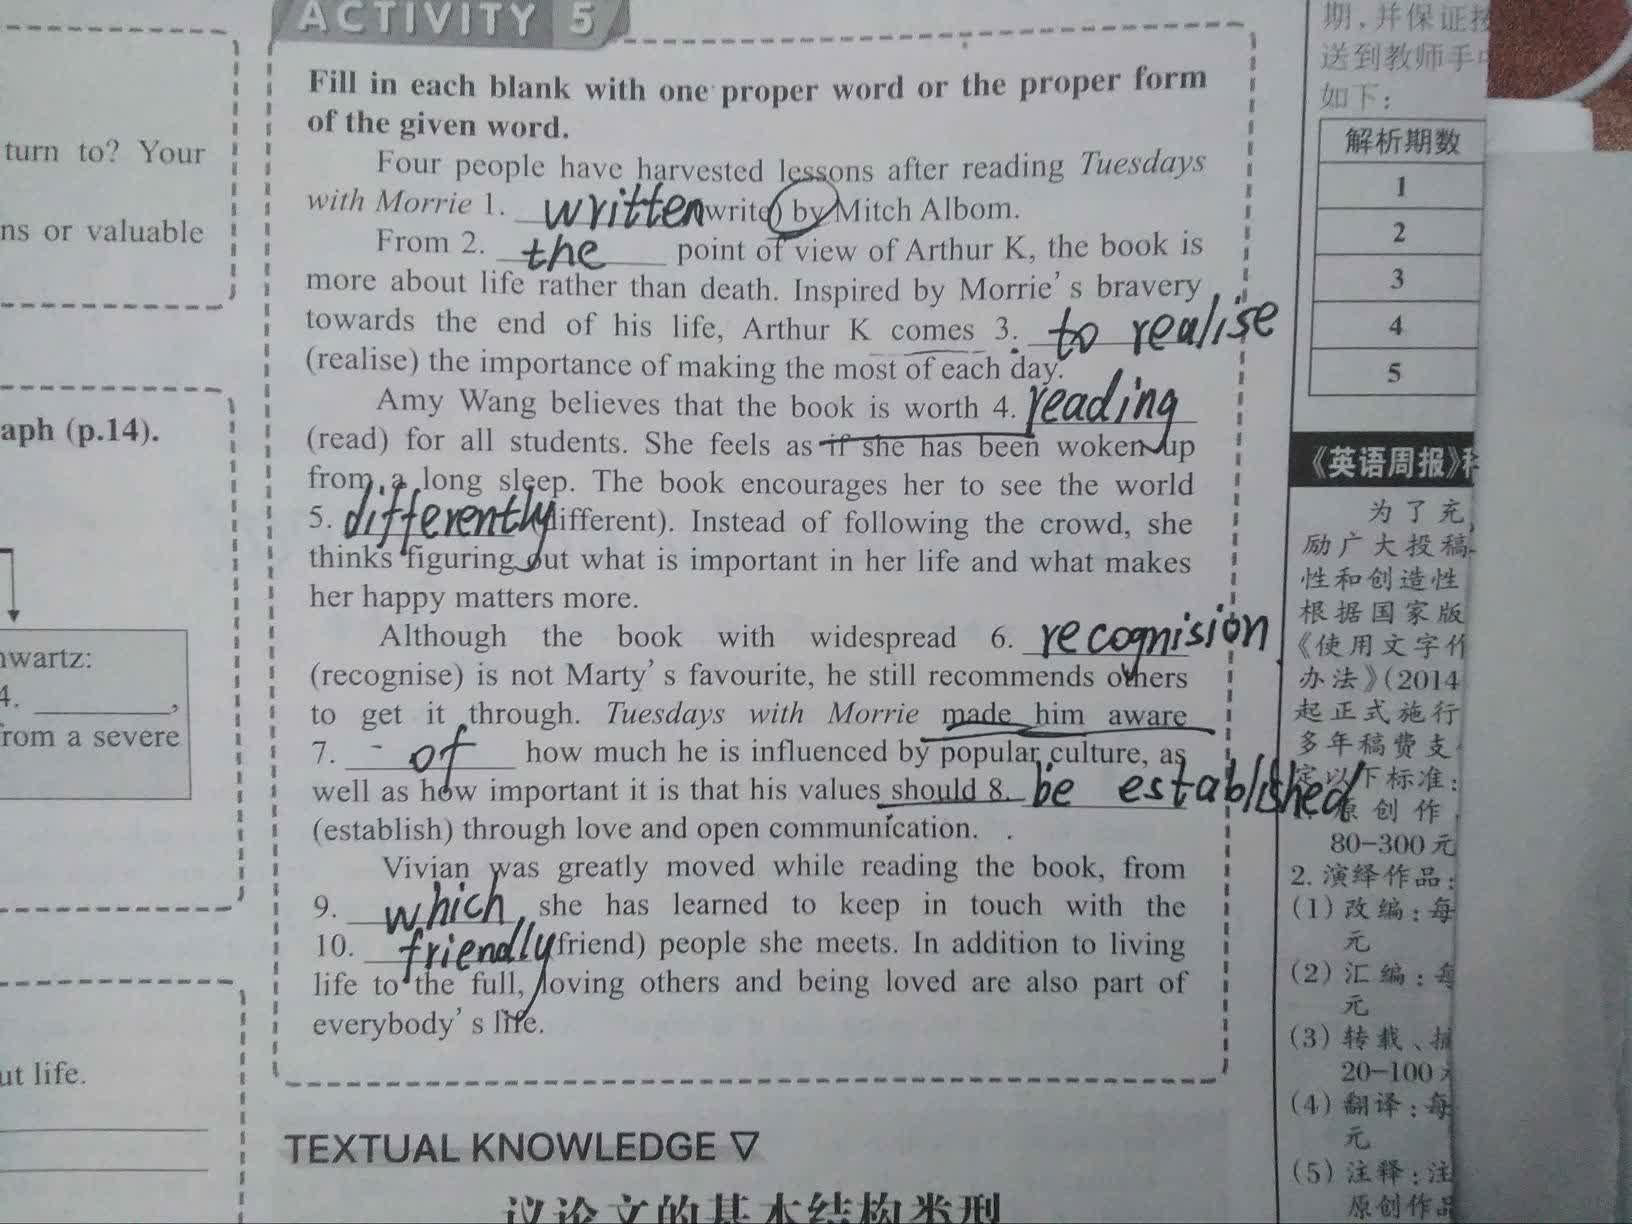 turn to? Your
ns or valuable
aph (p.14).
hwartz:
4. ________,
from a severe
ut life.
ACTIVITY 5
Fill in each blank with one proper word or the proper form
of the given word.
Four people have harvested lessons after reading Tuesdays
with Morrie 1. written (write) by Mitch Albom.
From 2. the point of view of Arthur K, the book is
more about life rather than death. Inspired by Morrie's bravery
towards the end of his life, Arthur K comes 3. to realise
(realise) the importance of making the most of each day.
Amy Wang believes that the book is worth 4. reading
(read) for all students. She feels as if she has been woken up
from a long sleep. The book encourages her to see the world
5. differently (different). Instead of following the crowd, she
thinks figuring out what is important in her life and what makes
her happy matters more.
Although the book with widespread 6. recognision
(recognise) is not Marty's favourite, he still recommends others
to get it through. Tuesdays with Morrie made him aware
7. of how much he is influenced by popular culture, as
well as how important it is that his values should 8. be established
(establish) through love and open communication.
Vivian was greatly moved while reading the book, from
9. which she has learned to keep in touch with the
10. friendly (friend) people she meets. In addition to living
life to the full, loving others and being loved are also part of
everybody's life.
TEXTUAL KNOWLEDGE
议论文的基本结构类型
期，并保证按
送到教师手中
如下：
解析期数
1
2
3
4
5
《英语周报》
为了充
励广大投稿
性和创造性
根据国家版
《使用文字作
办法》(2014
起正式施行
多年稿费支
定以下标准：
原创作
80-300元
2. 演绎作品：
(1) 改编：每
元
(2) 汇编：每
元
(3) 转载、摘
20-100
(4) 翻译：每
元
(5) 注释：注
原创作品